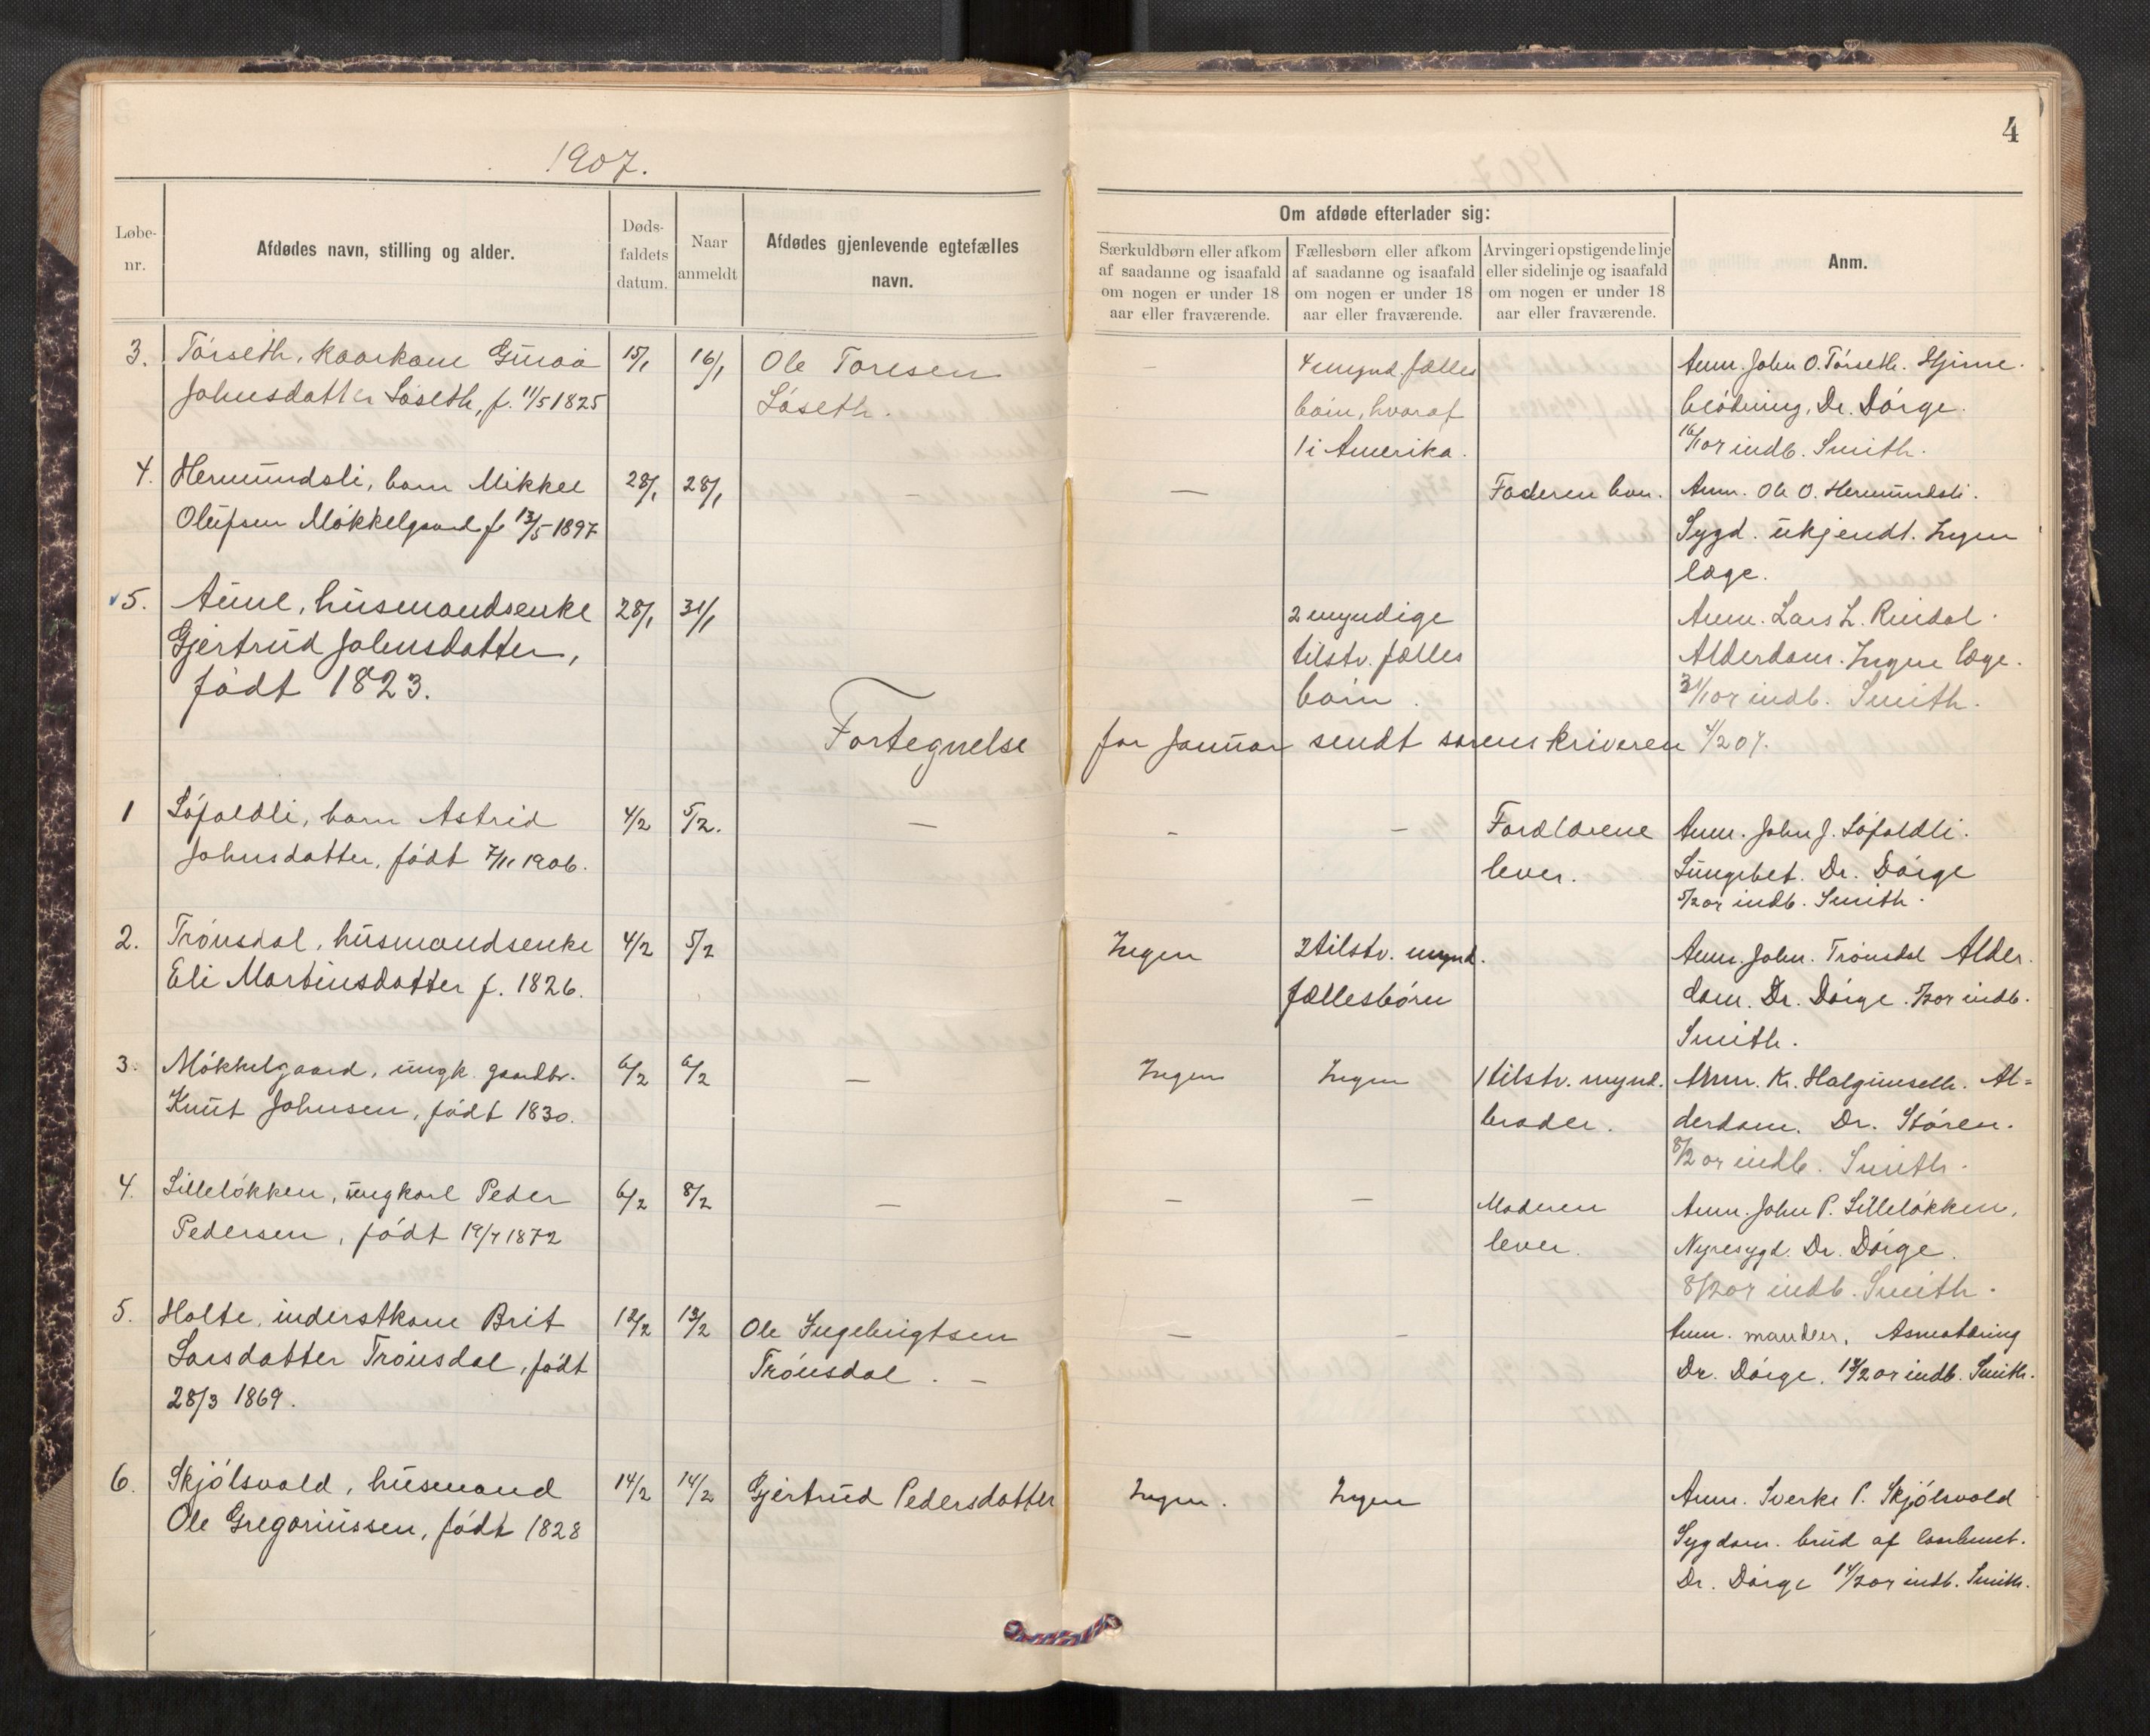 4
1907.
Løbe-
nr.
Afdødes navn, stilling og alder.
Døds-
faldets
datum.
Naar
anmeldt
Afdødes gjenlevende egtefælles
navn.
Om afdøde efterlader sig:
Særkuldbørn eller afkom
af saadanne og isaafald
om nogen er under 18
aar eller fraværende.
Fællesbørn eller afkom
af saadanne og isaafald
om nogen er under 18
aar eller fraværende.
Arvinger i opstigende linje
eller sidelinje og isaafald
om nogen er under 18
aar eller fraværende.
Anm.
3. Tørseth, kaarkone Guroa 15/1 16/1 Ole Toresen – 4 mynd fælles Anm. John O. Tørseth. Hjerne-
Johnsdatter Løseth, f. 11/5 1825 Løseth. børn, hvoraf blødning, Dr. Dørge.
1 i Amerika. 16/1 07 indb. Smith.
4. Hermundsli, barn Mikkel 28/1 28/1 – — Faderen lever. Anm. Ole O. Hermundsli.
Olufsen Møkkelgaard f. 13/5 1897 Sygd. ukjendt. Ingen
læge.
5. Aune, husmandsenke 28/1 31/1 2 myndige Anm. Lars L. Rindal.
Gjertrud Johnsdatter, tilstv. fælles Alderdom. Ingen læge.
født 1823. børn. 31/1 07 indb. Smith.
Fortegnelse for Januar sendt sorenskriveren 4/2 07.
1 Løfaldli, barn Astrid 4/2 5/2. — – – Forældrene Anm. John J. Løfaldli.
Johnsdatter, født 7/11 1906. lever. Lungebet. Dr. Dørge
5/2 07 indb. Smith.
2. Trønsdal, husmandsenke 4/2 5/2 Ingen 2 tilstv. mynd. Anm. John. Trønsdal Alder-
Eli Martinsdatter f. 1826. fællesbørn dom. Dr. Dørge. 5/2 07 indb.
Smith.
3. Møkkelgaard, ungk. gaardbr. 6/2 6/2 — Ingen Ingen 1 tilstv. mynd. Anm. Kr. Halgunseth. Al=
Knut Johnsen, født 1830. broder. derdom. Dr. Støren.
8/2 07 indb. Smith.
4. Lilleløkken, ungkarl Peder 6/2 8/2 — – – Moderen Anm. John P. Lilleløkken,
Pedersen, født 19/7 1872 lever. Nyresygd. Dr. Dørge.
8/2 07 indb. Smith.
5. Holte, inderstkone Brit 12/2 13/2 Ole Ingebrigtsen – – Anm. manden, Asmatæring
Larsdatter Trønsdal, født Trønsdal. – Dr. Dørge. 13/2 07 indb. Smith.
28/3 1869.
6. Skjølsvold, husmand 14/2 14/2 Gjertrud Pedersdatter Ingen. Ingen Anm. Sverke P. Skjølsvold
Ole Gregoriussen, født 1828 Sygdom. brud af laarbenet.
Dr. Dørge 14/2 07 indb. Smith.